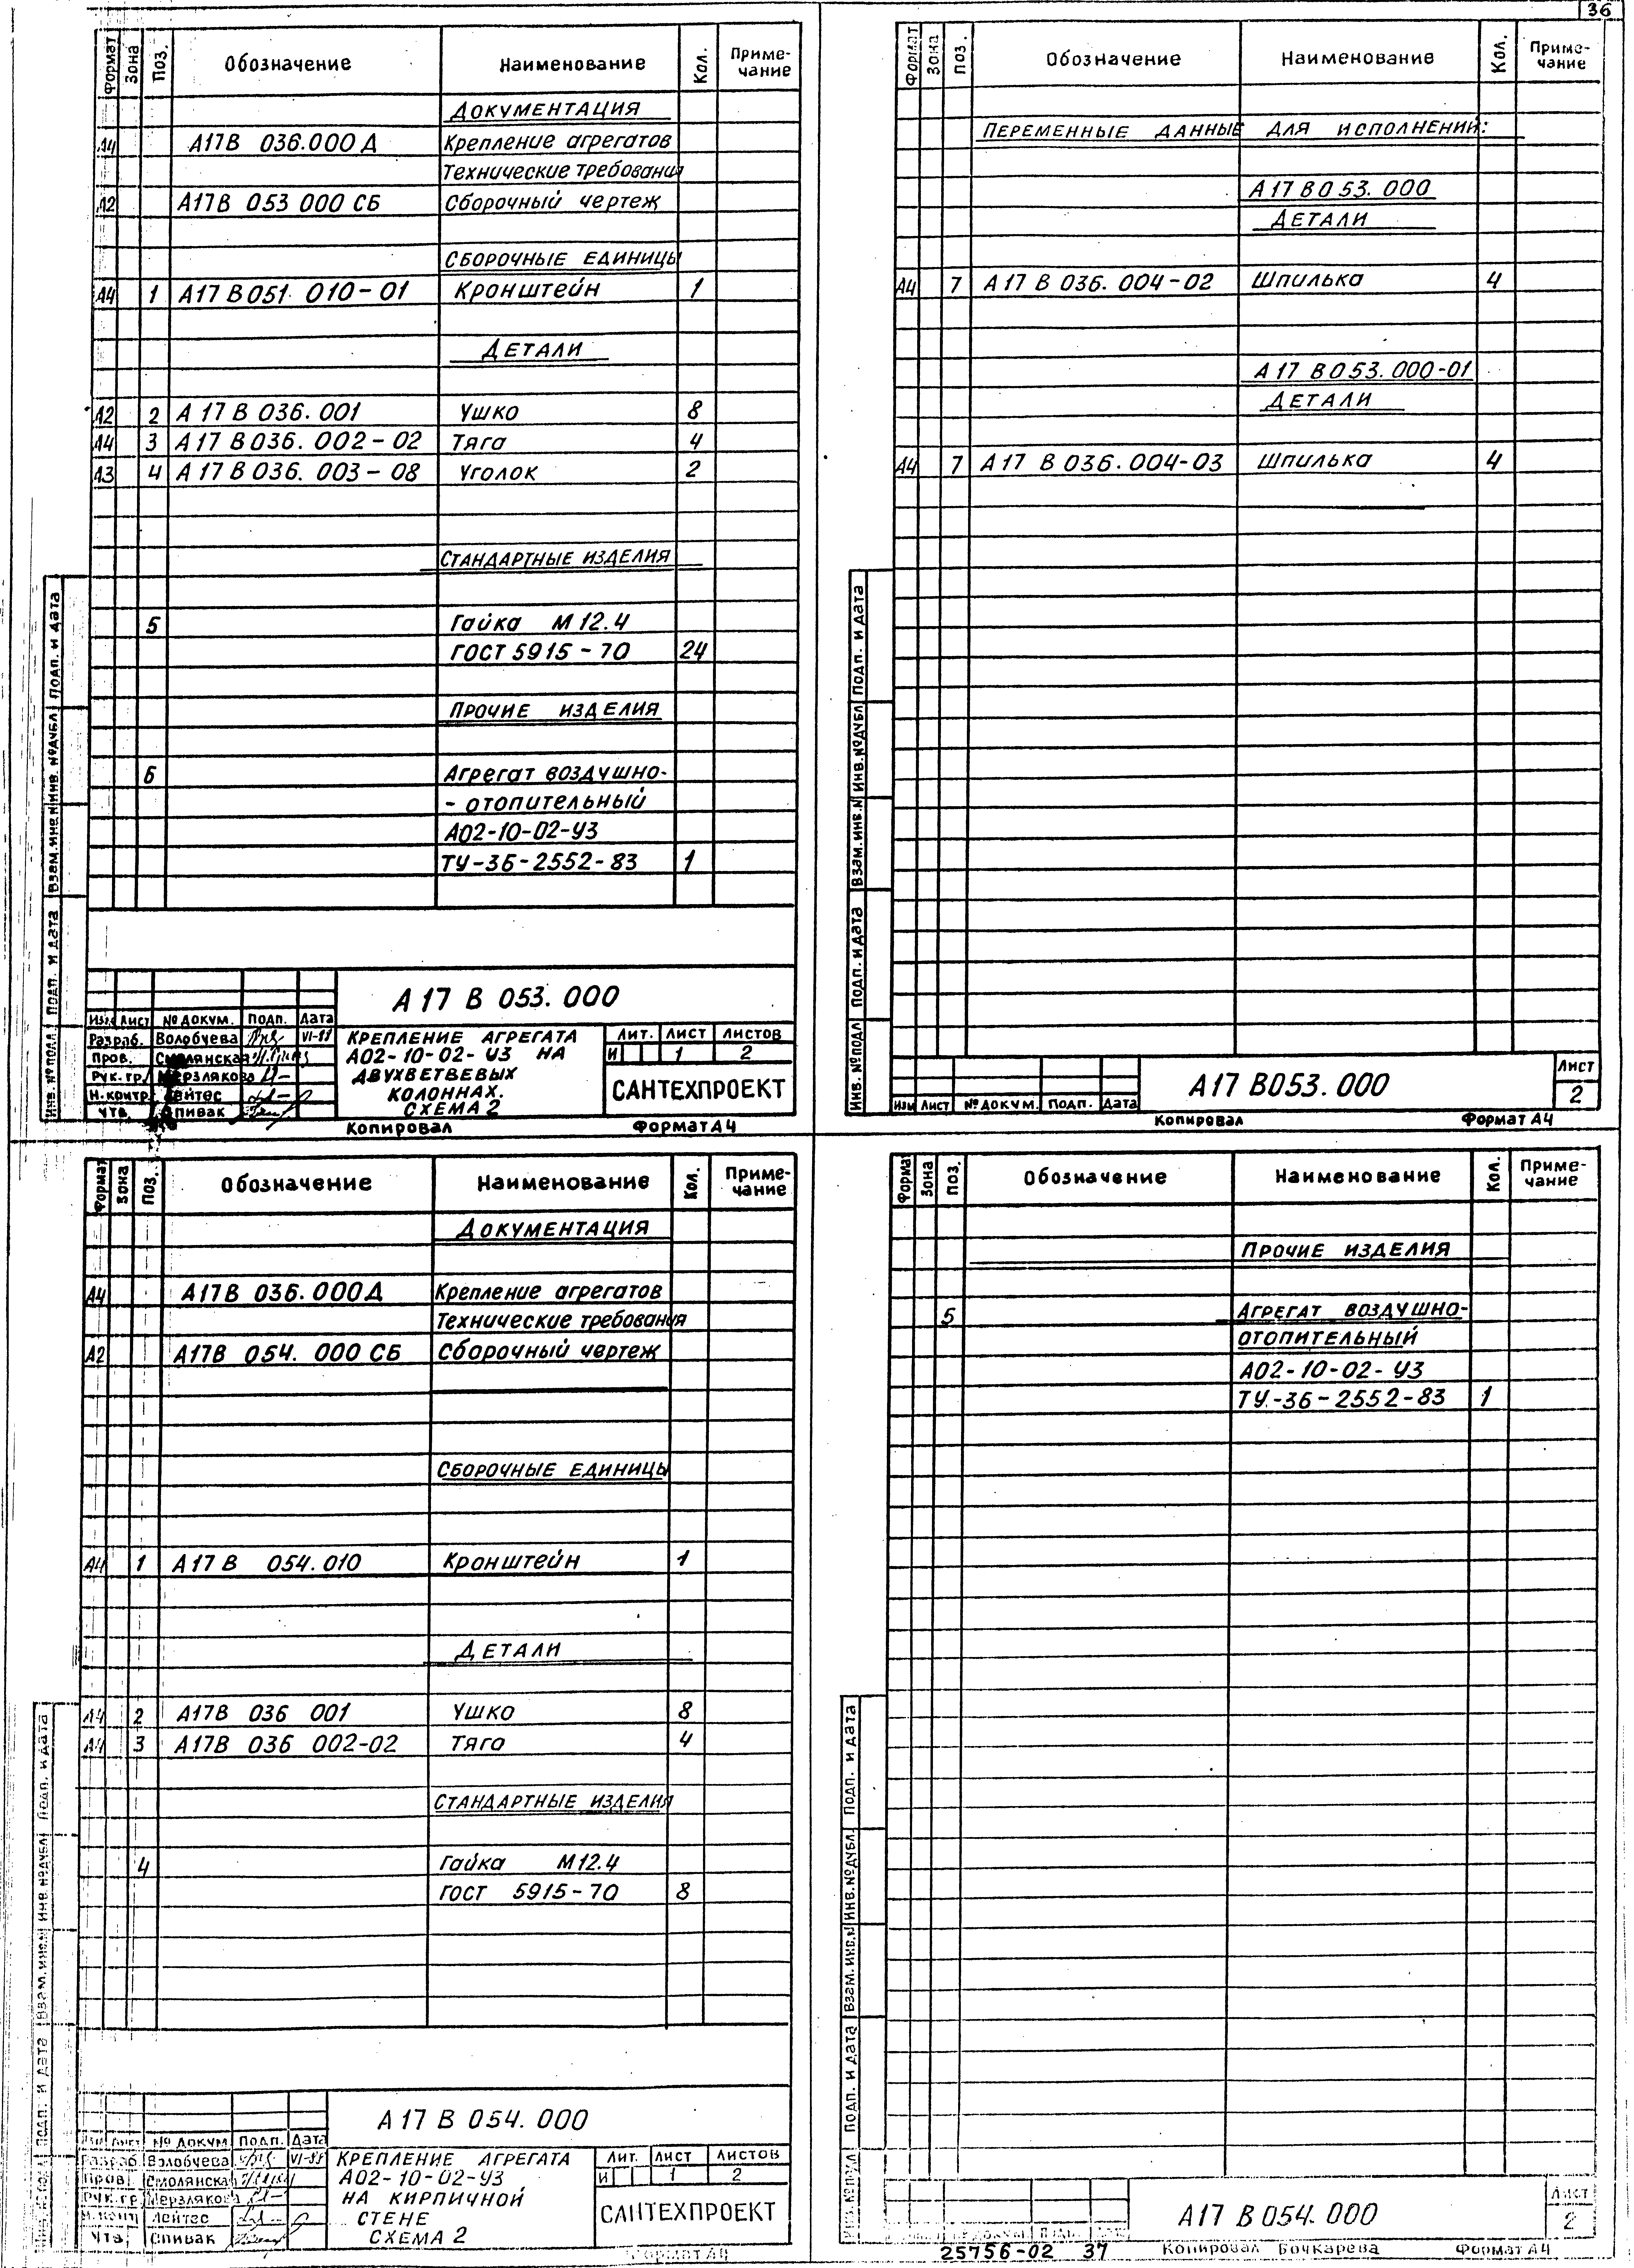 36
Формат Зона Поз. Обозначение Наименование Кол. Приме-
чание
Документация
А4 А17В 036.000 Д Крепление агрегатов
Технические требования
А2 А17В 053 000 СБ Сборочный чертеж
Сборочные единицы
А4 1 А17 В051. 010-01 Кронштейн 1
Детали
А2 2 А 17 В 036. 001 Ушко 8
А4 3 А 17 В 036. 002-02 Тяга 4
А3 4 А 17 В 036. 003-08 Уголок 2
Стандартные изделия
5 Гайка М 12.4
ГОСТ 5915-70 24
Прочие изделия
6 Агрегат воздушно-
- отопительный
А02-10-02-У3
ТУ-36-2552-83 1
Инв. № подл. Подп. и дата Взам. инв. № Инв. № дубл. Подп. и дата
А 17 В 053. 000
Изм Лист № докум. Подп. Дата
Разраб. Волобуева VI-88
Пров. Смолянская
Рук. гр. Мерзлякова
Н. контр. Лейтес
Утв. Спивак
Крепление агрегата
А02-10-02-У3 на
двухветвевых
колоннах.
Схема 2
Лит. Лист Листов
И 1 2
САНТЕХПРОЕКТ
Копировал Формат А4
Формат Зона Поз. Обозначение Наименование Кол. Приме-
чание
Переменные данные для исполнений:
А 17 В 053. 000
Детали
А4 7 А 17 В 036. 004-02 Шпилька 4
А 17 В 053. 000-01
Детали
А4 7 А 17 В 036. 004-03 Шпилька 4
Инв. № подл Подп. и дата Взам. инв. № Инв. № дубл Подп. и дата
Изм Лист № докум. Подп. Дата
А17 В053. 000
Лист
2
Копировал Формат А4
Формат Зона Поз. Обозначение Наименование Кол. Приме-
чание
Документация
А4 А17В 036.000 Д Крепление агрегатов
Технические требования
А2 А17В 054. 000 СБ Сборочный чертеж
Сборочные единицы
А4 1 А 17 В 054.010 Кронштейн 1
Детали
А4 2 А17В 036 001 Ушко 8
А4 3 А17В 036 002-02 Тяга 4
Стандартные изделия
4 Гайка М12.4
ГОСТ 5915-70 8
Подп. и дата Взам. инв. № Инв. № дубл. Подп. и дата
А 17 В 054. 000
Изм Лист № докум Подп. Дата
Разраб. Волобуева VI-88
Пров. Смолянская
Рук. гр. Мерзлякова
Н. контр Лейтес
Утв. Спивак
Крепление агрегата
А02-10-02-У3
на кирпичной
стене
Схема 2
Лит. Лист Листов
И 1 2
САНТЕХПРОЕКТ
Формат А4
Формат Зона Поз. Обозначение Наименование Кол. Приме-
чание
Прочие изделия
5 Агрегат воздушно-
отопительный
А02-10-02-У3
ТУ.-36-2552-83 1
Инв. № подл Подп. и дата Взам. инв. № Инв. № дубл. Подп. и дата
А17 В 054. 000
Лист
2
25756-02 37 Копировал Бочкарева Формат А4